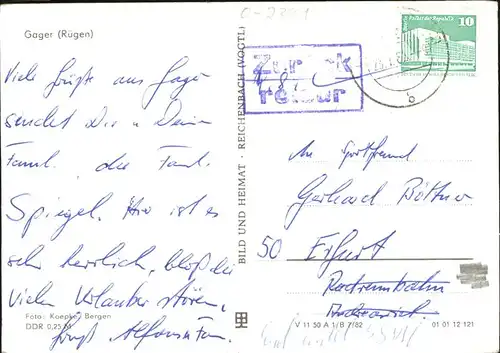 Gager (Rügen)
Viele Grüße aus Gager
sendet Dir u Deiner
Famil. die Fam.
Spiegel. Hier ist es
sehr herrlich, bloß die
vielen Urlauber stören,
Foto: Koepke, Bergen
DDR 0,25 M
BILD UND HEIMAT · REICHENBACH (VOGTL)
Zurück
retour
Palast der Republik
10
b
An Sportfreund
Gerhard Böttner
50 Erfurt
Radrennbahn
Andreasried
V 11 50 A 1/B 7/82 01 01 12 121